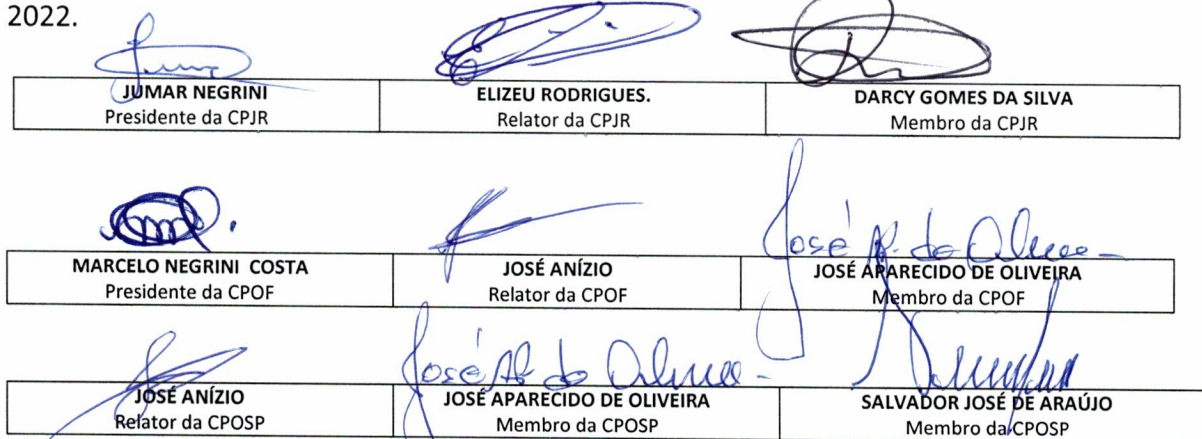 2022.
JUMAR NEGRINI
Presidente da CPJR
ELIZEU RODRIGUES.
Relator da CPJR
DARCY GOMES DA SILVA
Membro da CPJR
José Ap. de Olivee-
MARCELO NEGRINI COSTA
Presidente da CPOF
JOSÉ ANÍZIO
Relator da CPOF
JOSÉ APARECIDO DE OLIVEIRA
Membro da CPOF
José Ap. de
JOSÉ ANÍZIO
Relator da CPOSP
JOSÉ APARECIDO DE OLIVEIRA
Membro da CPOSP
SALVADOR JOSÉ DE ARAÚJO
Membro da CPOSP